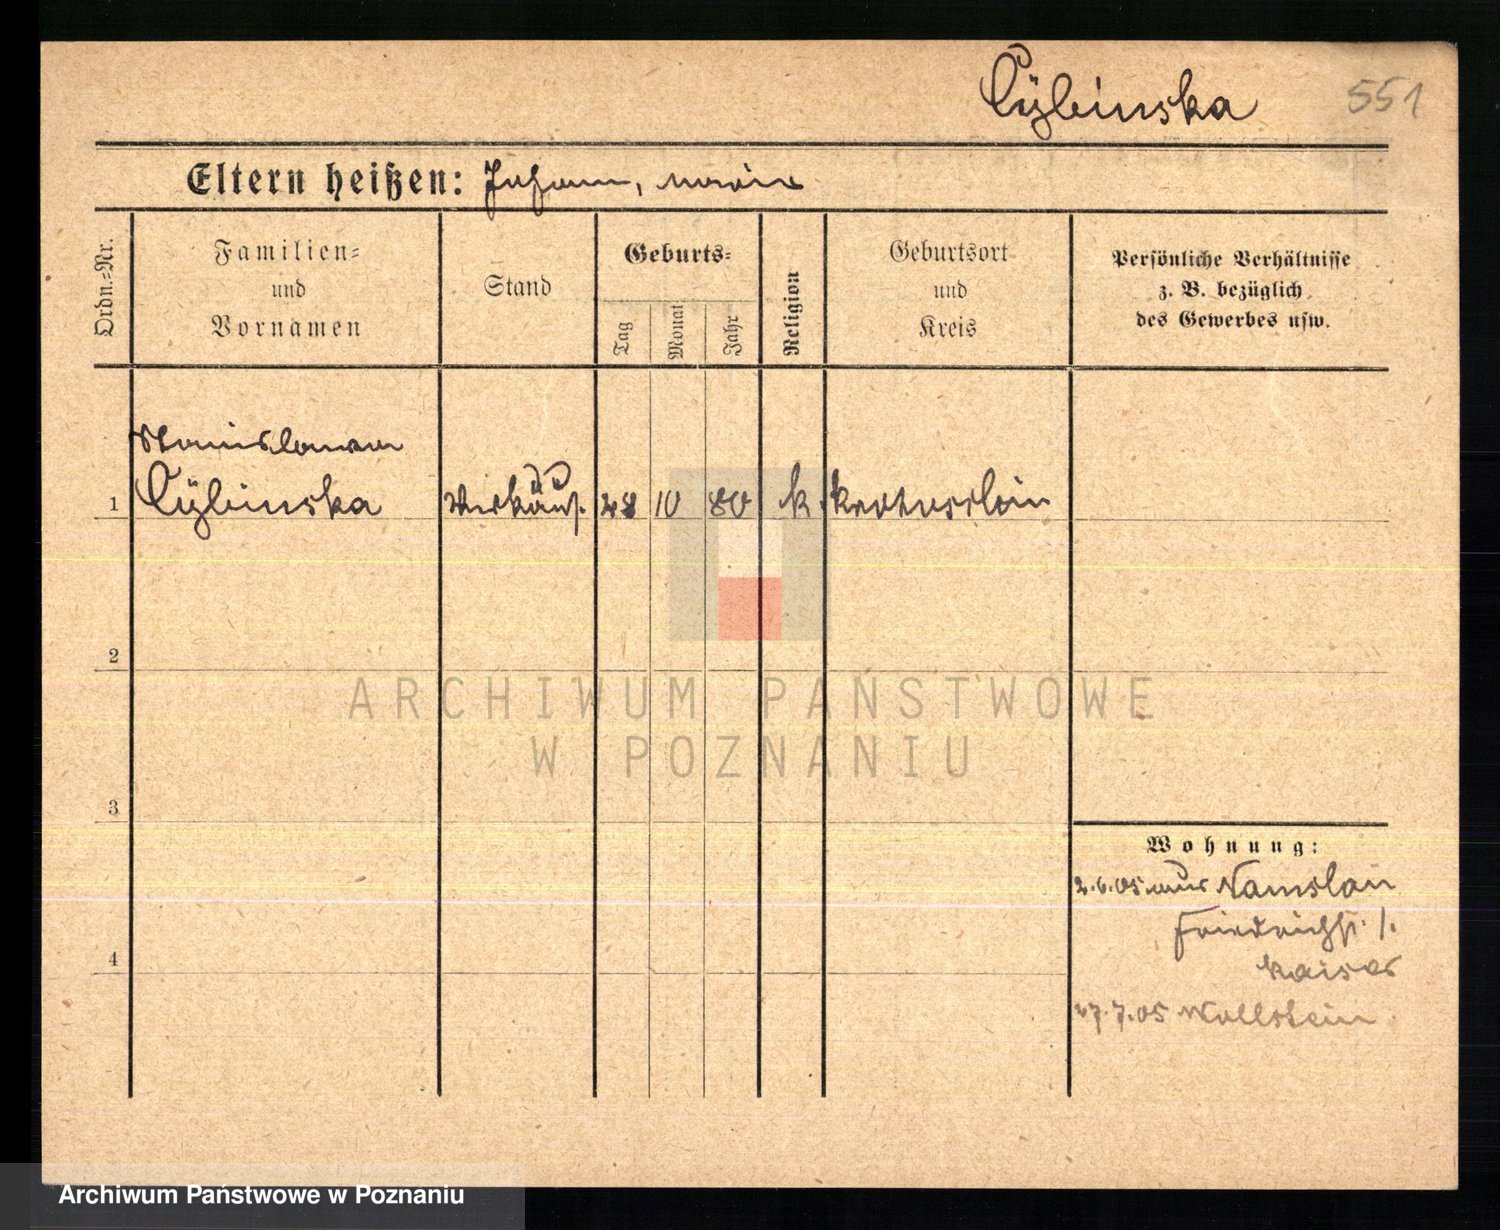 Cÿbinska 551
Eltern heißen: Johann, Marie
Ordn.=Nr.
Familien=
und
Vornamen
Stand
Geburts=
Tag
Monat
Jahr
Religion
Geburtsort
und
Kreis
Persönliche Verhältnisse
z. B. bezüglich
des Gewerbes usw.
Stanislawa
1 Cÿbinska Verkäuf. 28 10 80 k. Krotoschin
2
ARCHIWUM PAŃSTWOWE
W POZNANIU
3
Wohnung:
2.6.05 aus Namslau
Friedrichstr. 1.
Kaiser
27.7.05 Wollstein
4
Archiwum Państwowe w Poznaniu